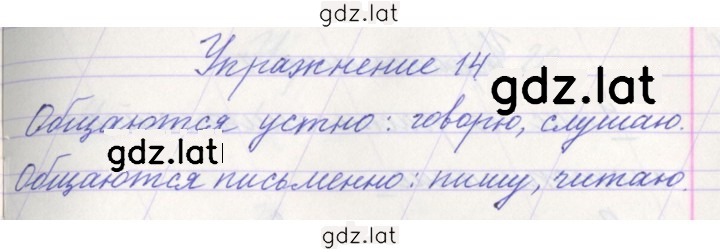 gdz.lat
Упражнение 14
gdz.lat
Общаются устно: говорю, слушаю.
gdz.lat
Общаются письменно: пишу, читаю.
gdz.lat